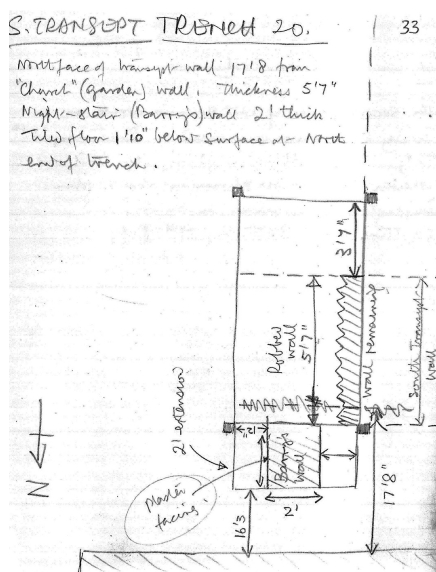 S. TRANSEPT TRENCH 20.
33
North face of transept wall 17'8 from
"Church" (garden) wall. Thickness 5'7"
Night-stair (Barry's) wall 2' thick
Tiled floor 1'10" below surface at North
end of trench.
3'7"
Robber wall
5'7"
wall remaining
South Transept wall
2' extension
Barry's wall
plaster facing.
2'
16'3
17'8"
N